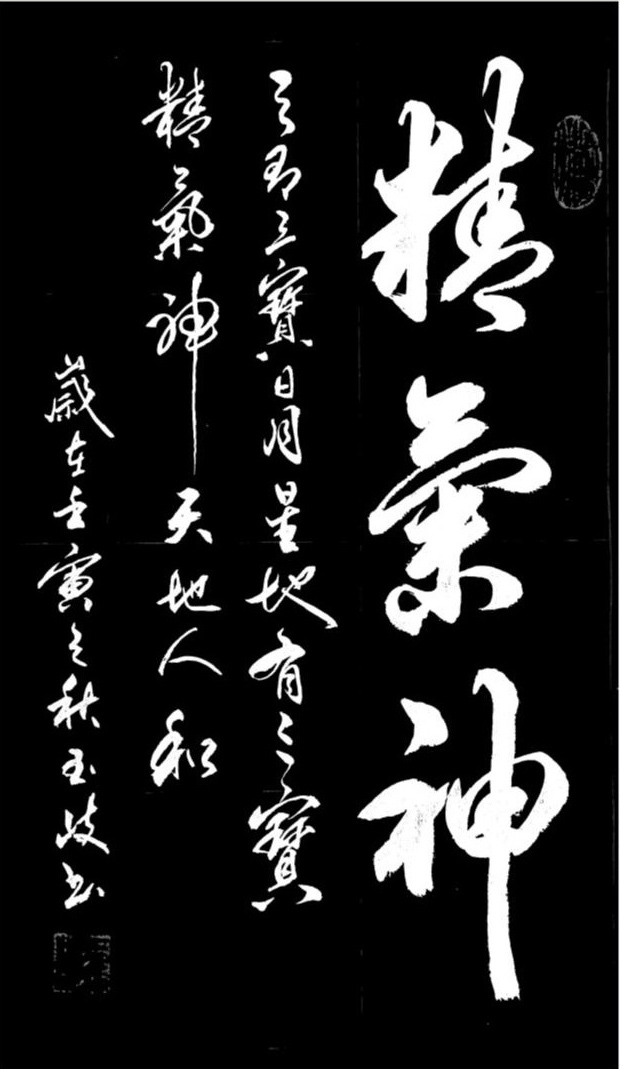 精氣神
三寶日月星地有三寶
精氣神天地人和
歲在壬寅之秋玉岐书